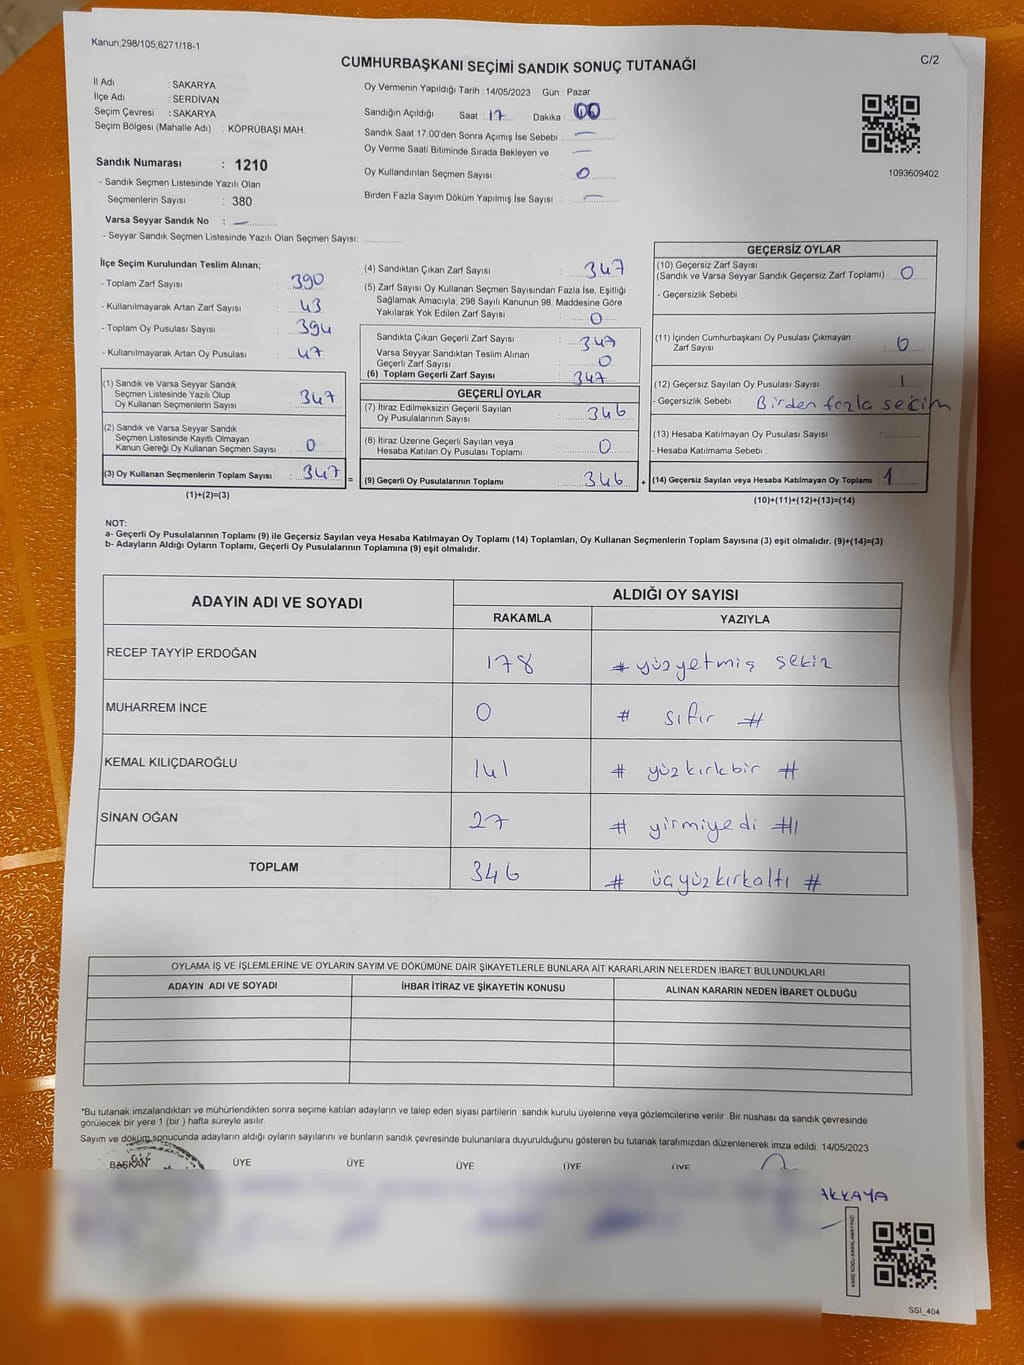 Kanun;298/105;6271/18-1
C/2
CUMHURBAŞKANI SEÇİMİ SANDIK SONUÇ TUTANAĞI
İl Adı : SAKARYA
İlçe Adı : SERDİVAN
Seçim Çevresi : SAKARYA
Seçim Bölgesi (Mahalle Adı) : KÖPRÜBAŞI MAH.
Sandık Numarası : 1210
- Sandık Seçmen Listesinde Yazılı Olan
Seçmenlerin Sayısı : 380
Varsa Seyyar Sandık No : —
- Seyyar Sandık Seçmen Listesinde Yazılı Olan Seçmen Sayısı:
Oy Vermenin Yapıldığı Tarih : 14/05/2023 Gün : Pazar
Sandığın Açıldığı Saat : 17 Dakika : 00
Sandık Saat 17:00'den Sonra Açımış İse Sebebi : —
Oy Verme Saati Bitiminde Sırada Bekleyen ve —
Oy Kullandırılan Seçmen Sayısı : 0
Birden Fazla Sayım Döküm Yapılmış İse Sayısı : —
1093609402
İlçe Seçim Kurulundan Teslim Alınan;
- Toplam Zarf Sayısı : 390
- Kullanılmayarak Artan Zarf Sayısı : 43
- Toplam Oy Pusulası Sayısı : 394
- Kullanılmayarak Artan Oy Pusulası : 47
(1) Sandık ve Varsa Seyyar Sandık
Seçmen Listesinde Yazılı Olup
Oy Kullanan Seçmenlerin Sayısı : 347
(2) Sandık ve Varsa Seyyar Sandık
Seçmen Listesinde Kayıtlı Olmayan
Kanun Gereği Oy Kullanan Seçmen Sayısı : 0
(3) Oy Kullanan Seçmenlerin Toplam Sayısı : 347 =
(1)+(2)=(3)
(4) Sandıktan Çıkan Zarf Sayısı : 347
(5) Zarf Sayısı Oy Kullanan Seçmen Sayısından Fazla İse, Eşitliği
Sağlamak Amacıyla; 298 Sayılı Kanunun 98. Maddesine Göre
Yakılarak Yok Edilen Zarf Sayısı : 0
Sandıkta Çıkan Geçerli Zarf Sayısı : 347
Varsa Seyyar Sandıktan Teslim Alınan
Geçerli Zarf Sayısı : 0
(6) Toplam Geçerli Zarf Sayısı : 347
GEÇERLİ OYLAR
(7) İtiraz Edilmeksizin Geçerli Sayılan
Oy Pusulalarının Sayısı : 346
(8) İtiraz Üzerine Geçerli Sayılan veya
Hesaba Katılan Oy Pusulası Toplamı : 0
(9) Geçerli Oy Pusulalarının Toplamı : 346 +
GEÇERSİZ OYLAR
(10) Geçersiz Zarf Sayısı
(Sandık ve Varsa Seyyar Sandık Geçersiz Zarf Toplamı) : 0
- Geçersizlik Sebebi :
(11) İçinden Cumhurbaşkanı Oy Pusulası Çıkmayan
Zarf Sayısı : 0
(12) Geçersiz Sayılan Oy Pusulası Sayısı : 1
- Geçersizlik Sebebi : Birden fazla seçim
(13) Hesaba Katılmayan Oy Pusulası Sayısı :
- Hesaba Katılmama Sebebi :
(14) Geçersiz Sayılan veya Hesaba Katılmayan Oy Toplamı : 1
(10)+(11)+(12)+(13)=(14)
NOT:
a- Geçerli Oy Pusulalarının Toplamı (9) ile Geçersiz Sayılan veya Hesaba Katılmayan Oy Toplamı (14) Toplamları, Oy Kullanan Seçmenlerin Toplam Sayısına (3) eşit olmalıdır. (9)+(14)=(3)
b- Adayların Aldığı Oyların Toplamı, Geçerli Oy Pusulalarının Toplamına (9) eşit olmalıdır.
ADAYIN ADI VE SOYADI ALDIĞI OY SAYISI
RAKAMLA YAZIYLA
RECEP TAYYİP ERDOĞAN 178 # yüzyetmiş sekiz
MUHARREM İNCE 0 # sıfır #
KEMAL KILIÇDAROĞLU 141 # yüzkırkbir #
SİNAN OĞAN 27 # yirmiyedi #
TOPLAM 346 # üçyüzkırkaltı #
OYLAMA İŞ VE İŞLEMLERİNE VE OYLARIN SAYIM VE DÖKÜMÜNE DAİR ŞİKAYETLERLE BUNLARA AİT KARARLARIN NELERDEN İBARET BULUNDUKLARI
ADAYIN ADI VE SOYADI İHBAR İTİRAZ VE ŞİKAYETİN KONUSU ALINAN KARARIN NEDEN İBARET OLDUĞU
*Bu tutanak imzalandıktan ve mühürlendikten sonra seçime katılan adayların ve talep eden siyasi partilerin sandık kurulu üyelerine veya gözlemcilerine verilir .Bir nüshası da sandık çevresinde
görülecek bir yere 1 (bir ) hafta süreyle asılır.
Sayım ve döküm sonucunda adayların aldığı oyların sayılarını ve bunların sandık çevresinde bulunanlara duyurulduğunu gösteren bu tutanak tarafımızdan düzenlenerek imza edildi. 14/05/2023
BAŞKAN ÜYE ÜYE ÜYE ÜYE ÜYE
AKKAYA
KARE KODU KARALAMAYINIZ!
SSI_404